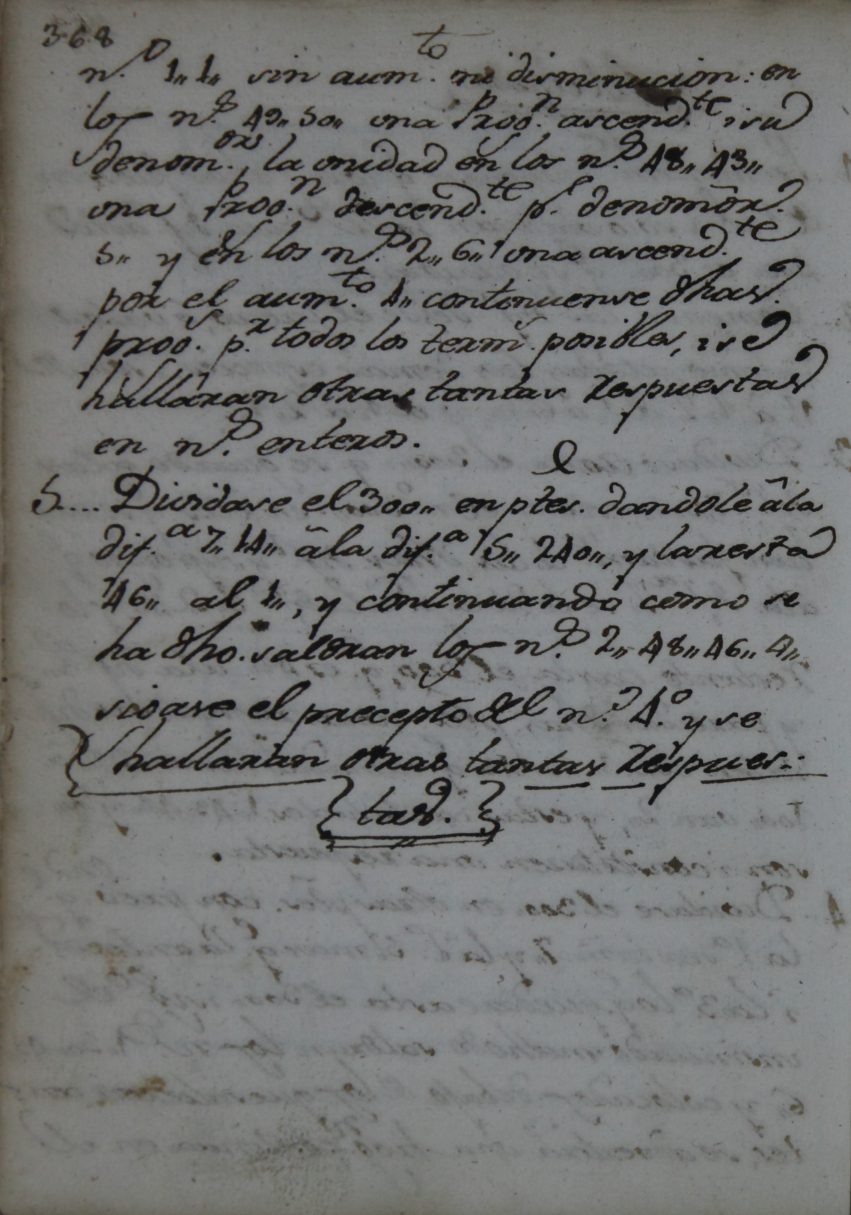 368
n.º 1,, 1,, sin aum.to ni disminucion: en
los n.s 49,, 50,, una Prog.n ascend.te i su
denom.or la unidad en los n.s 48,, 43,,
una Prog.n descend.te p.r denomôr.
5,, y en los n.s 2,, 6,, una ascend.te
por el aum.to 4,, continuense dhas.
prog.s p.r todos los term.s posibles, i se
hallàran otras tantas respuestas
en n.s enteros.
5.... Dividase el 300,, en ptes. dandole âla
dif.a 7,, 14,, âla dif.a 5,, 240,, y la resta
46,, al 1,, y continuando como se
ha dho. saldran los n.s 2,, 48,, 46,, 4,,
sigase el precepto del n.º 4.º y se
hallaran otras tantas respues:
tas.